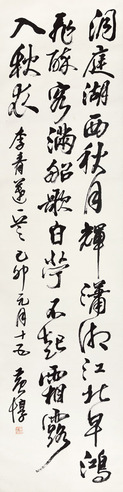 洞庭湖西秋月輝瀟湘江北早鴻
飛醉客滿船歌白苧不知霜露
入秋衣 李青蓮 己卯元月十五 黃惇